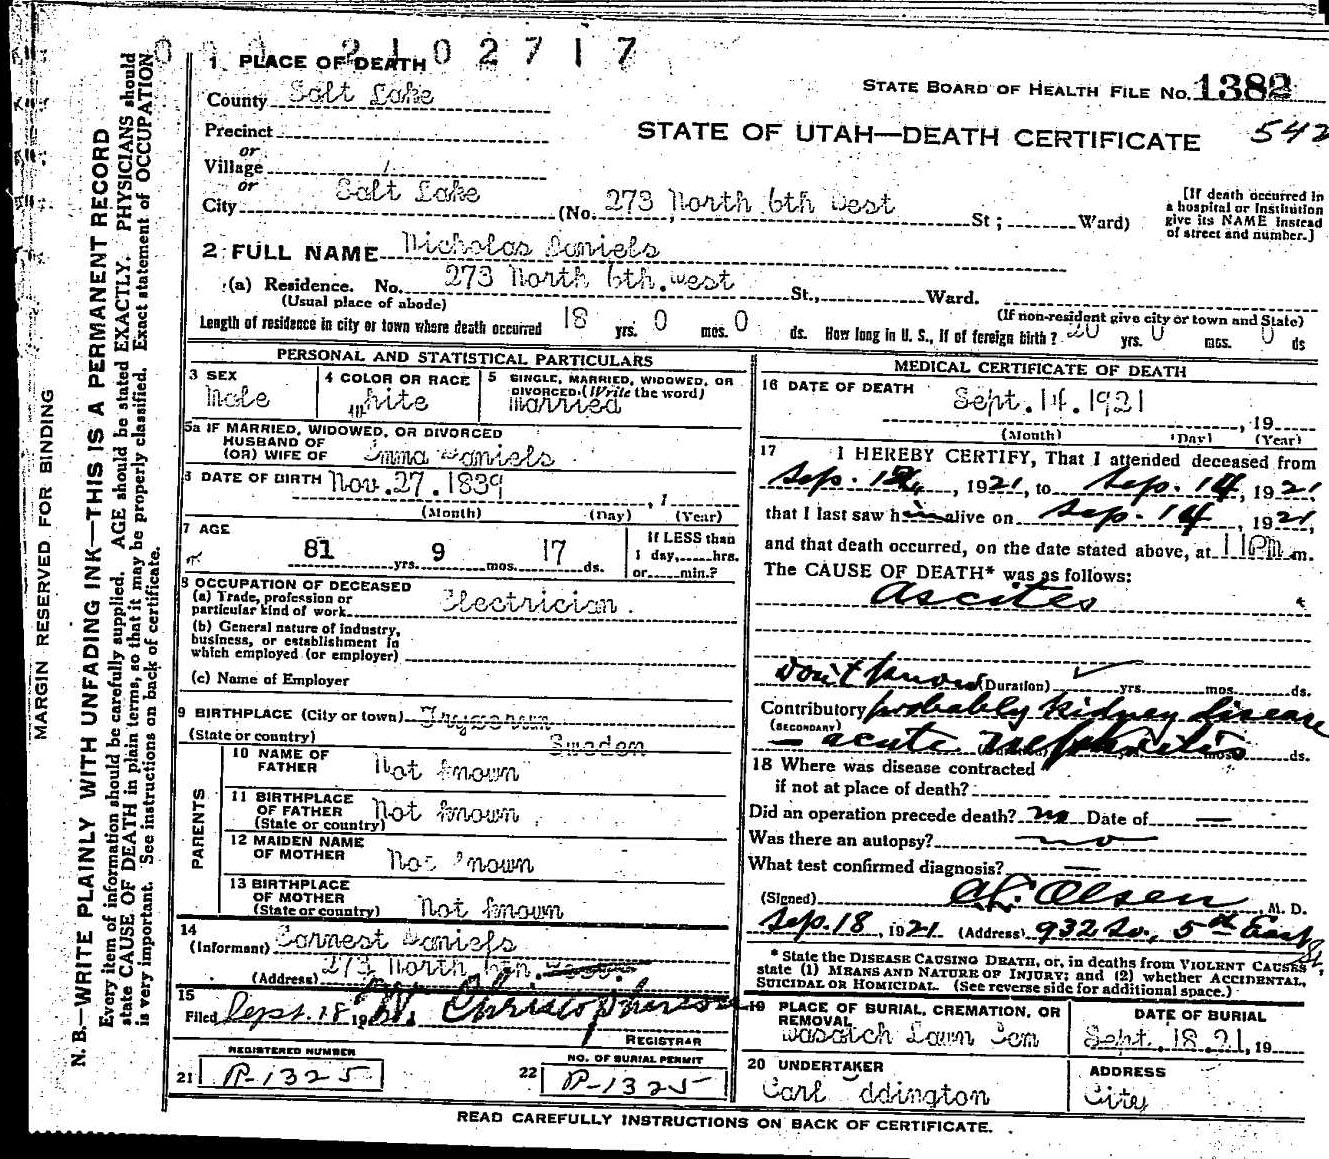 0 0 0 2 1 0 2 7 1 7
1. PLACE OF DEATH
STATE BOARD OF HEALTH FILE NO. 1382
County Salt Lake
Precinct
542
STATE OF UTAH—DEATH CERTIFICATE
or
Village
or
City Salt Lake (No. 273 North 6th West St; Ward)
[If death occurred in a hospital or institution give its NAME instead of street and number.]
2 FULL NAME Nicholas Daniels
(a) Residence. No. 273 North 6th. West St., Ward.
(Usual place of abode) (If non-resident give city or town and State)
Length of residence in city or town where death occurred 18 yrs. 0 mos. 0 ds. How long in U. S., if of foreign birth? 20 yrs. 0 mos. 0 ds
PERSONAL AND STATISTICAL PARTICULARS
3 SEX Male
4 COLOR OR RACE White
5 SINGLE, MARRIED, WIDOWED, OR DIVORCED (Write the word) Married
5a IF MARRIED, WIDOWED, OR DIVORCED
HUSBAND OF
(OR) WIFE OF Emma Daniels
6 DATE OF BIRTH Nov. 27. 1839 , 1
(Month) (Day) (Year)
7 AGE
81 yrs. 9 mos. 17 ds.
If LESS than 1 day, hrs. or min.?
8 OCCUPATION OF DECEASED
(a) Trade, profession or particular kind of work Electrician.
(b) General nature of industry, business, or establishment in which employed (or employer)
(c) Name of Employer
9 BIRTHPLACE (City or town)
(State or country) Sweden
PARENTS
10 NAME OF FATHER Not known
11 BIRTHPLACE OF FATHER (State or country) Not known
12 MAIDEN NAME OF MOTHER Not known
13 BIRTHPLACE OF MOTHER (State or country) Not known
14
(Informant) Earnest Daniels
(Address) 273 North 6th.
15
Filed Sept. 18 1921 W. Christopherson
REGISTRAR
REGISTERED NUMBER
21 P-1325
NO. OF BURIAL PERMIT
22 P-1325
MEDICAL CERTIFICATE OF DEATH
16 DATE OF DEATH Sept. 14. 1921 , 19
(Month) (Day) (Year)
17 I HEREBY CERTIFY, That I attended deceased from
Sep. 12, 1921, to Sep. 14, 1921
that I last saw him alive on Sep. 14, 1921,
and that death occurred, on the date stated above, at 11PM m.
The CAUSE OF DEATH* was as follows:
Ascites
Don't know (Duration) yrs. mos. ds.
Contributory probably kidney disease
(SECONDARY)
— acute nephritis mos. ds.
18 Where was disease contracted
if not at place of death?
Did an operation precede death? no Date of —
Was there an autopsy? no
What test confirmed diagnosis? —
(Signed) A.L. Olsen, M. D.
Sep. 18, 1921 (Address) 932 So., 5th East St.
* State the DISEASE CAUSING DEATH, or, in deaths from VIOLENT CAUSES, state (1) MEANS AND NATURE OF INJURY; and (2) whether ACCIDENTAL, SUICIDAL OR HOMICIDAL. (See reverse side for additional space.)
19 PLACE OF BURIAL, CREMATION, OR REMOVAL
Wasatch Lawn Cem
DATE OF BURIAL
Sept. 18. 21, 19
20 UNDERTAKER
Carl Eddington
ADDRESS
City
READ CAREFULLY INSTRUCTIONS ON BACK OF CERTIFICATE.
MARGIN RESERVED FOR BINDING
N. B.—WRITE PLAINLY WITH UNFADING INK—THIS IS A PERMANENT RECORD
Every item of information should be carefully supplied. AGE should be stated EXACTLY. PHYSICIANS should
state CAUSE OF DEATH in plain terms, so that it may be properly classified. Exact statement of OCCUPATION
is very important. See instructions on back of certificate.